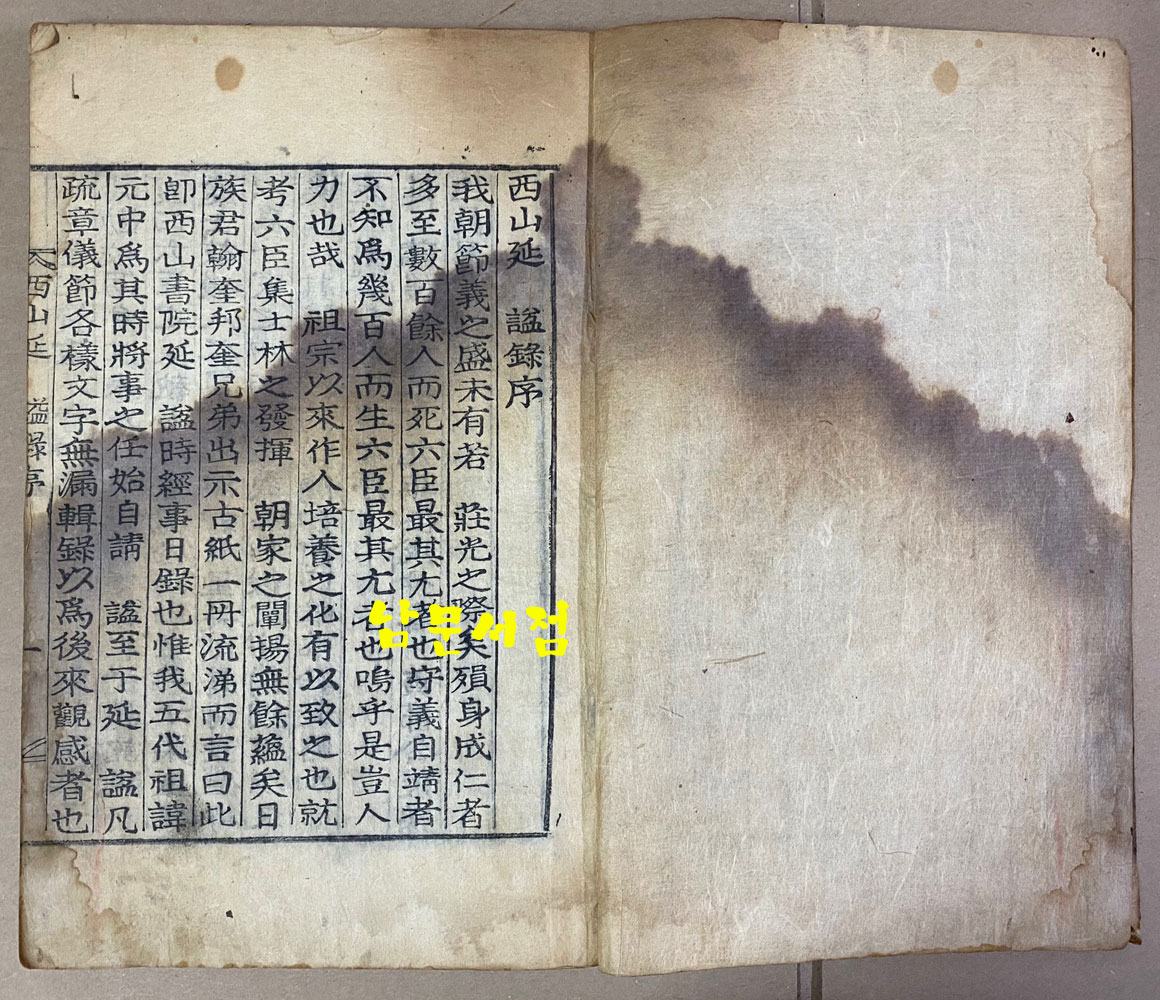 西山延　諡錄序
我朝節義之盛未有若　莊光之際矣殞身成仁者
多至數百餘人而死六臣最其尤者也守義自靖者
不知爲幾百人而生六臣最其尤者也嗚乎是豈人
力也哉　祖宗以來作人培養之化有以致之也就
考六臣集士林之發揮　朝家之闡揚無餘蘊矣日
族君翰奎邦奎兄弟出示古紙一冊流涕而言曰此
卽西山書院延　諡時經事日錄也惟我五代祖諱
元中爲其時將事之任始自請　諡至于延　諡凡
疏章儀節各樣文字無漏輯錄以爲後來觀感者也
西山延　諡錄序
一
남문서점